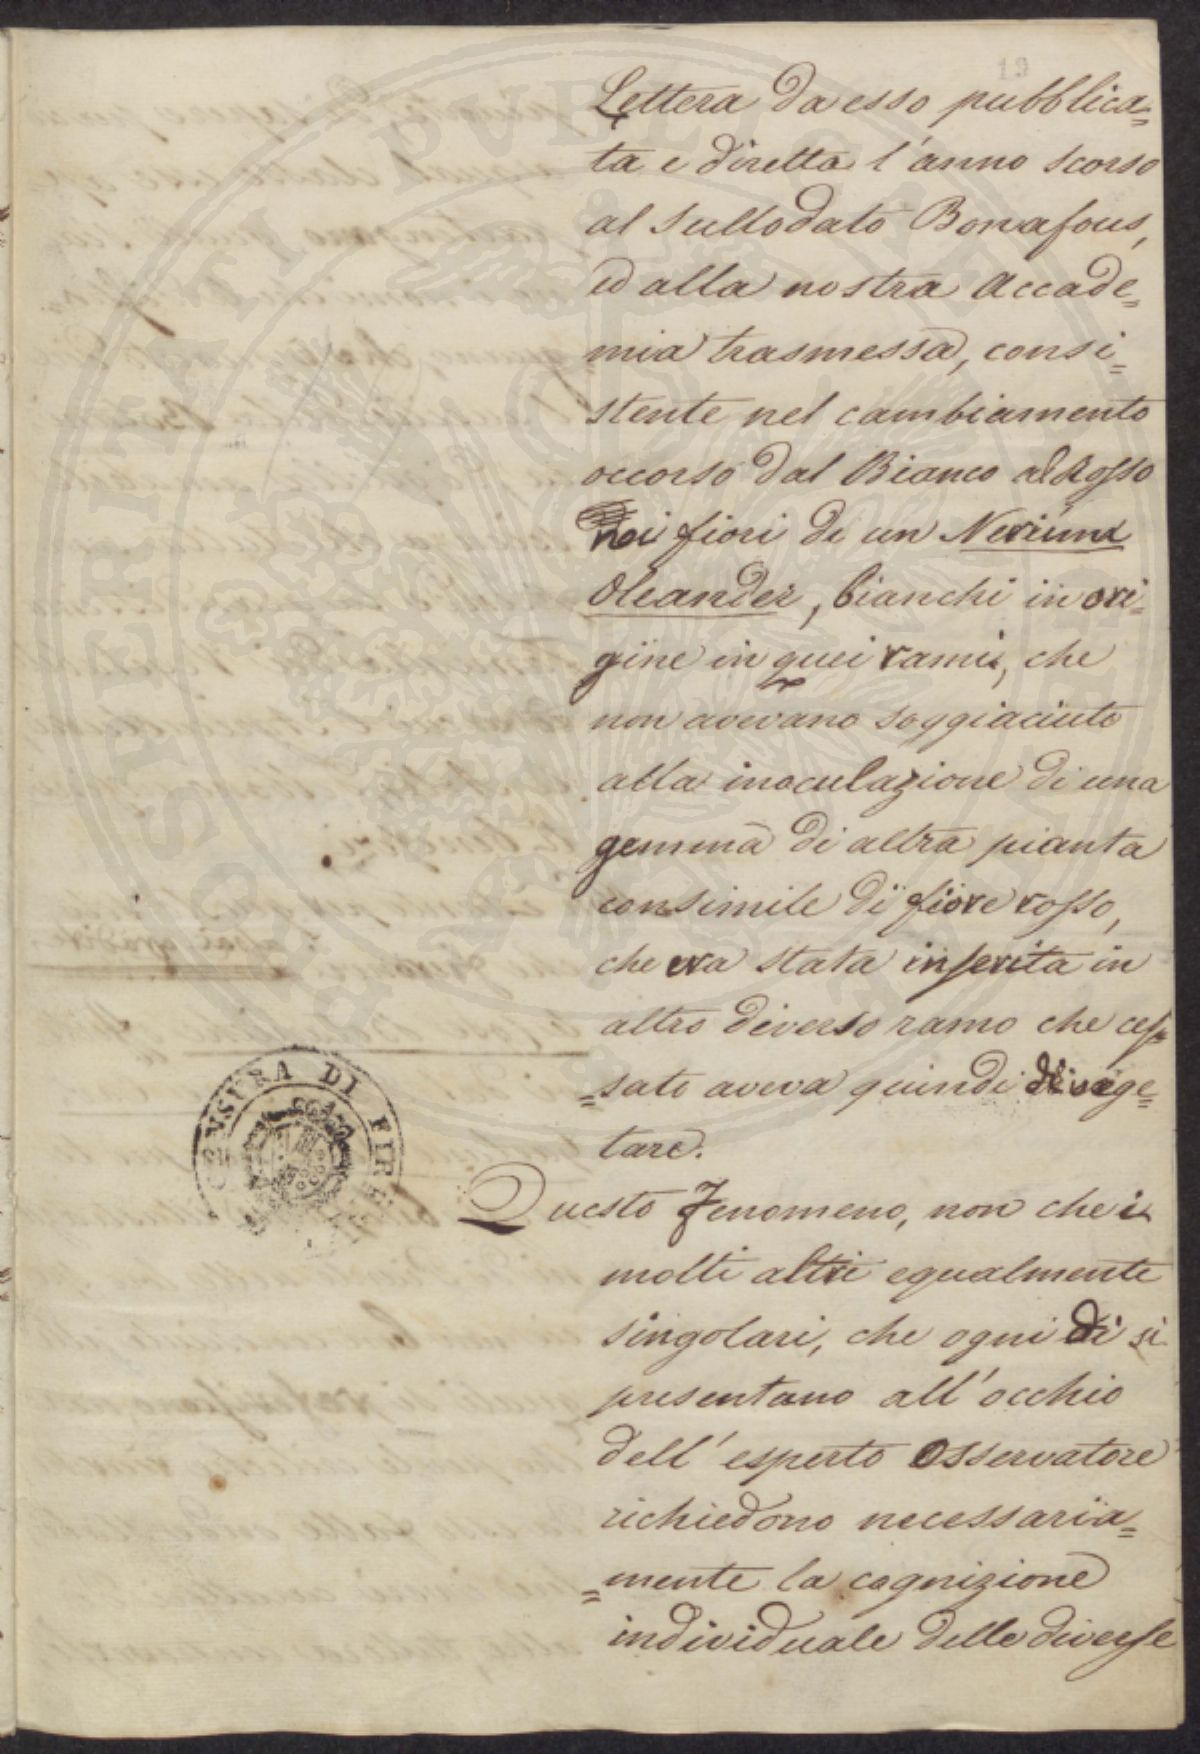 19
Lettera da esso pubblica=
ta e diretta l'anno scorso
al Sullodato Bonafous,
ed alla nostra Accade=
mia trasmessa, consi=
stente nel cambiamento
occorso dal Bianco al Rosso
nei fiori di un Nerium
Oleander, bianchi in ori=
gine in quei rami, che
non avevano soggiaciuto
alla inoculazione di una
gemma di altra pianta
consimile di fiore rosso,
che era stata inserita in
altro diverso ramo che ces=
=sato aveva quindi di vege=
tare.
Questo Fenomeno, non che i
molti altri egualmente
singolari, che ogni dì si
presentano all'occhio
dell'esperto Osservatore
richiedono necessaria=
=mente la cognizione
individuale delle diverse
CENSURA DI FIRENZE
PROSPERITATI PUBLICAE